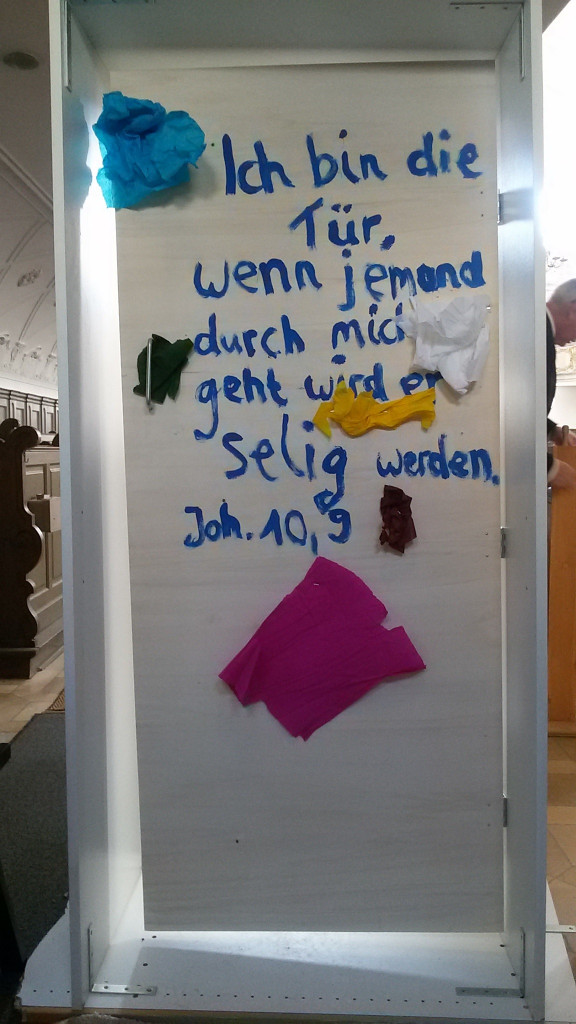 Ich bin die
Tür,
wenn jemand
durch mich
geht wird er
selig werden.
Joh. 10,9